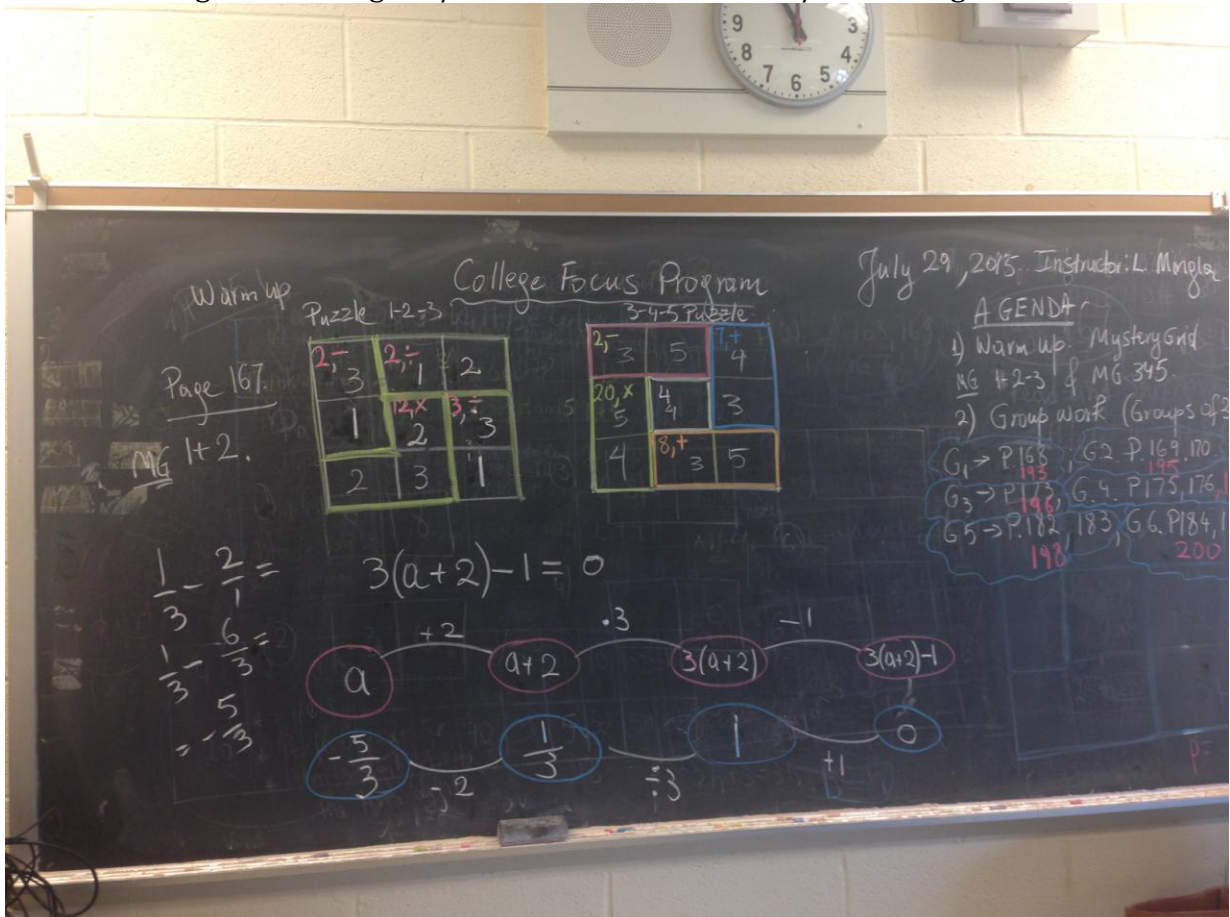 9
3
8
4
7
6
5
College Focus Program
July 29, 2015. Instructor: L.
Warm up
Page 167.
MG 1+2.
Puzzle 1-2-3
2,- 3 2,÷ 1 2
1 12,x 2 3,÷ 3
2 3 1
3-4-5 Puzzle
2,- 3 5 7,+ 4
20,x 5 4 4 3
4 8,+ 3 5
AGENDA
1) Warm up. Mystery Grid
MG 1-2-3 & MG 345.
2) Group work (Groups of
G1 → P.168, G.2 P.169, 170
193 195
G3 → P173, G.4. P175, 176,
196
G5 → P.182, 183, G6. P184,
198 200
1/3 - 2/1 =
1/3 - 6/3 =
= - 5/3
3(a+2)-1=0
+2 ·3 -1
a a+2 3(a+2) 3(a+2)-1
-5/3 1/3 1 0
-2 ÷3 +1
P=